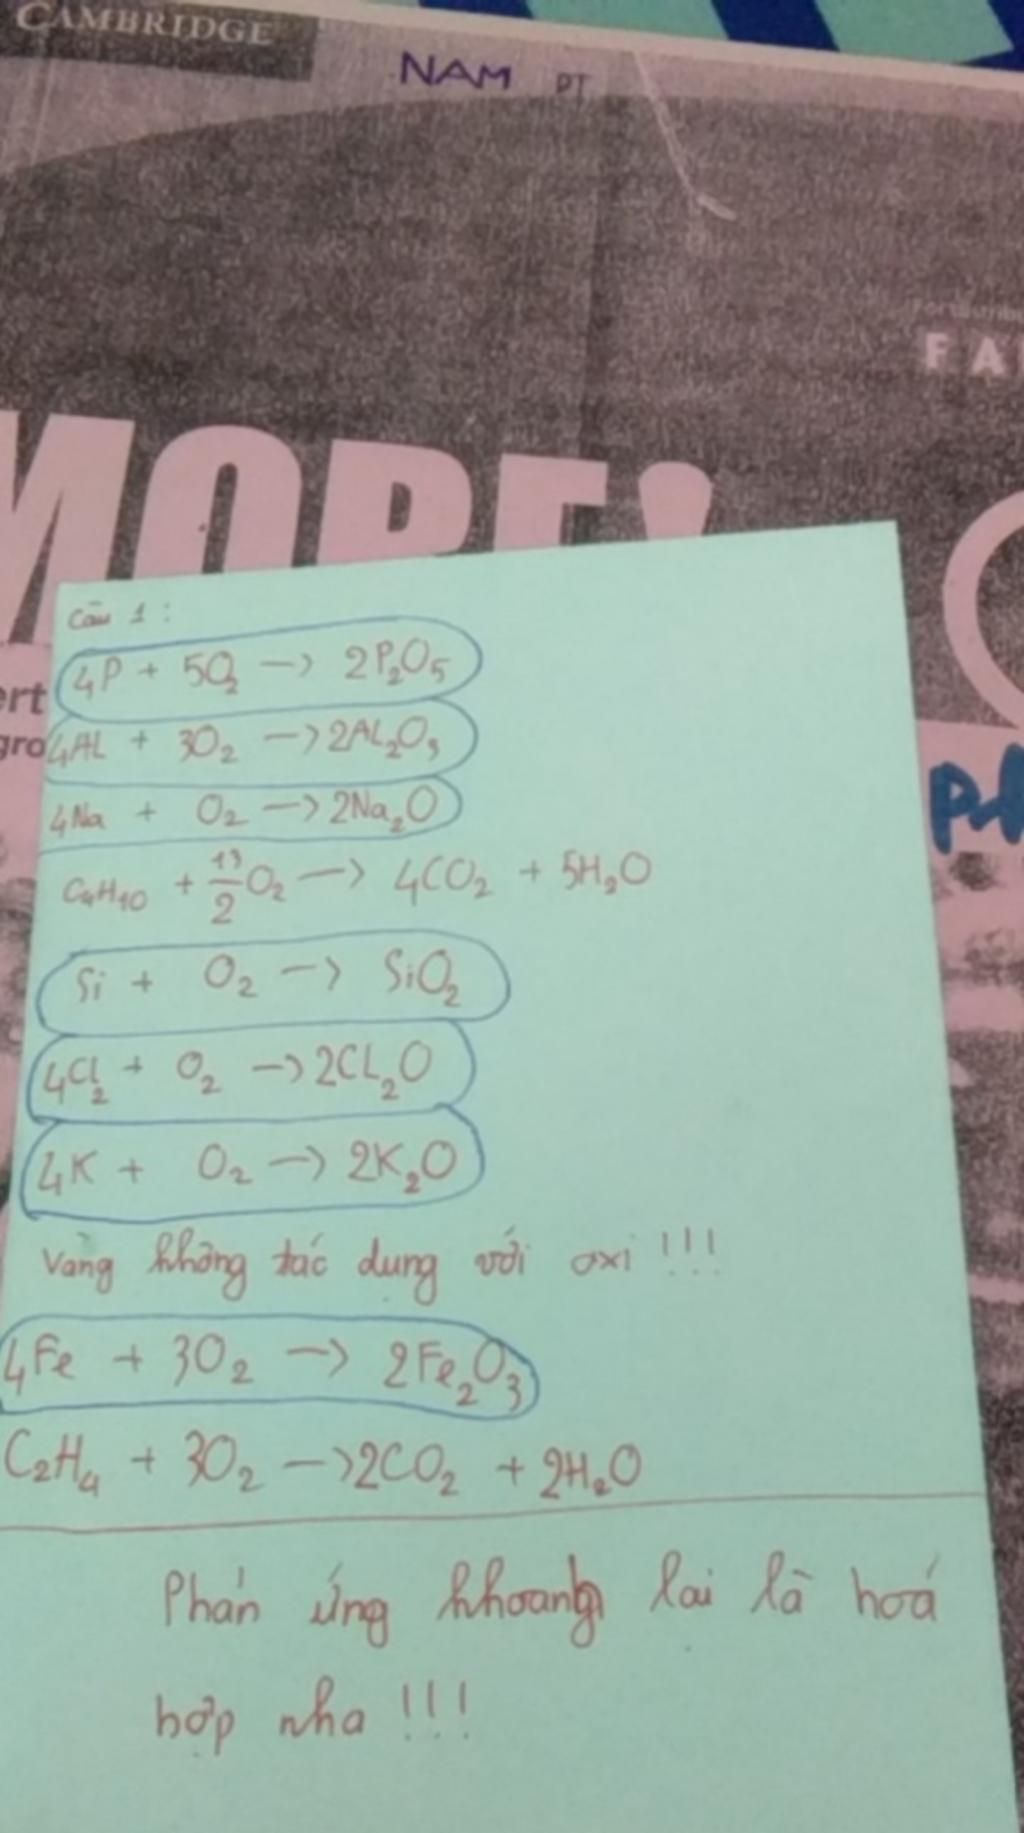 CAMBRIDGE
NAM PT
FA
MORE!
ert
gro
Câu 1 :
4P + 5O2 → 2P2O5
4AL + 3O2 → 2AL2O3
4Na + O2 → 2Na2O
C4H10 + 13/2 O2 → 4CO2 + 5H2O
Si + O2 → SiO2
4Cl2 + O2 → 2CL2O
4K + O2 → 2K2O
Vàng không tác dụng với oxi !!!
4Fe + 3O2 → 2Fe2O3
C2H4 + 3O2 → 2CO2 + 2H2O
Phản ứng khoanh lai là hoá
hợp nha !!!